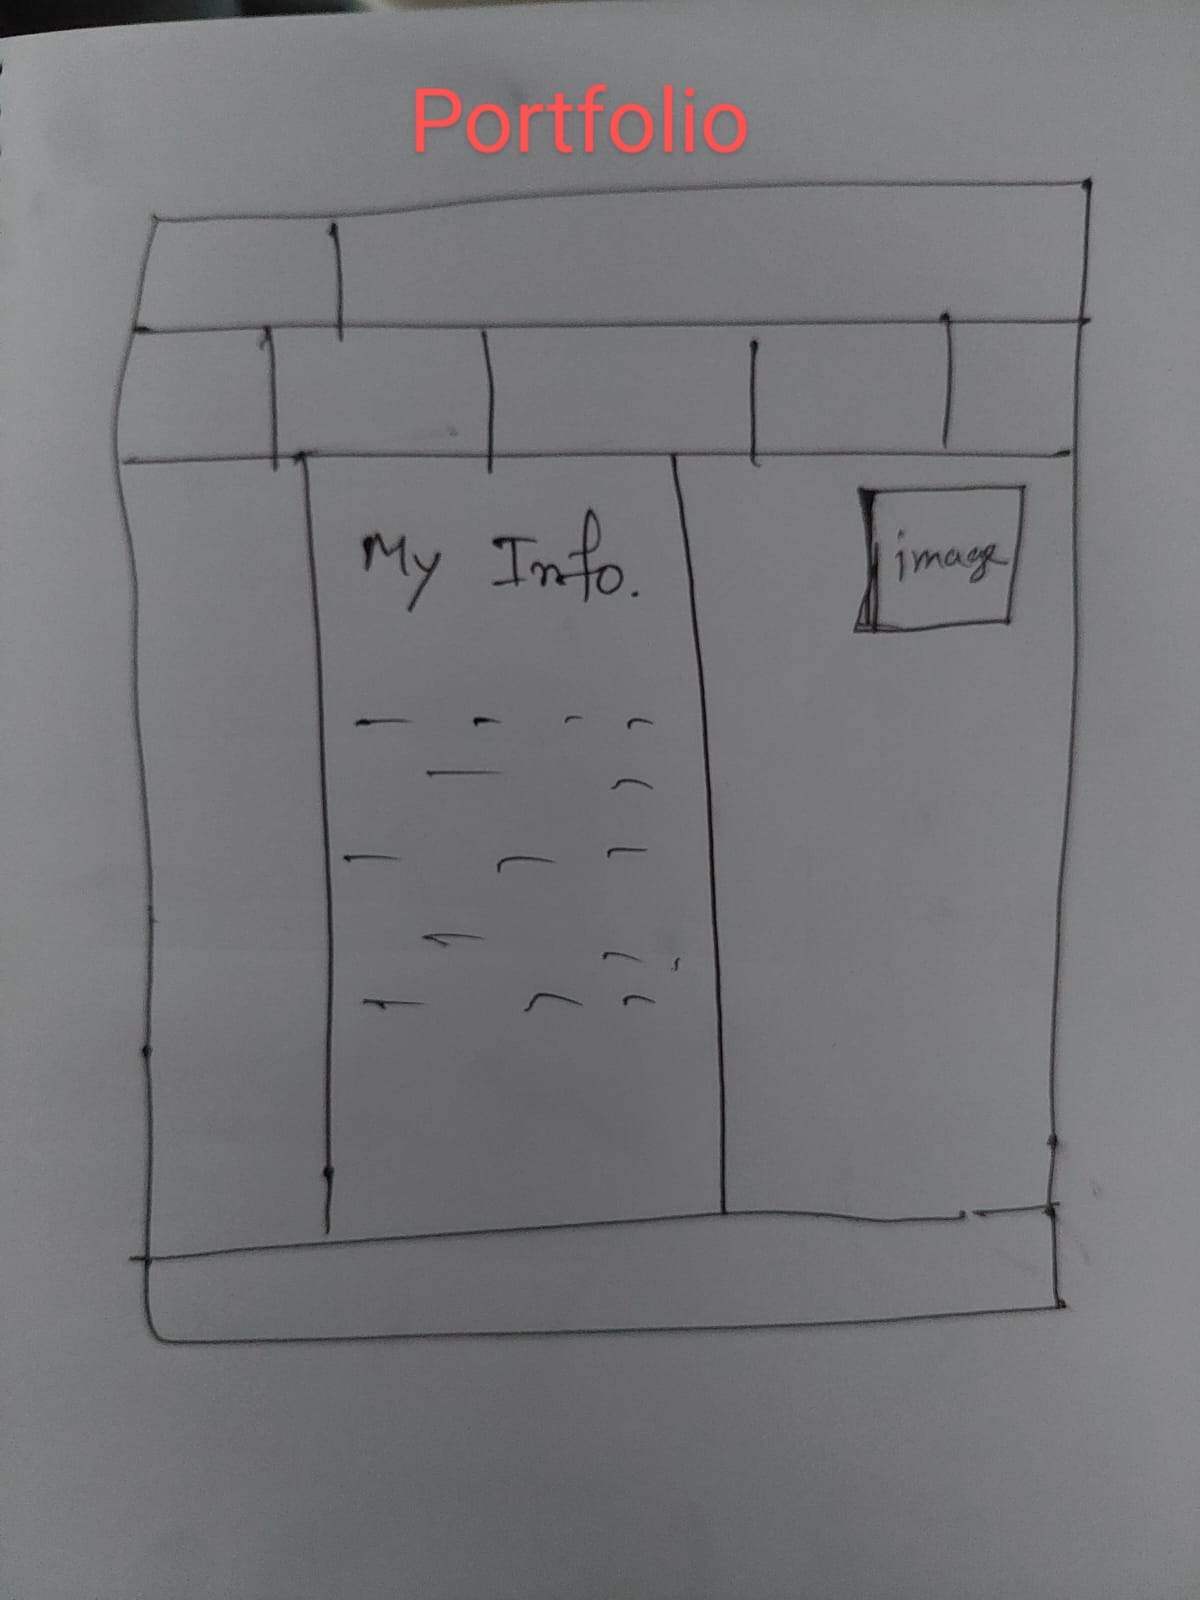 Portfolio
My Info.
image